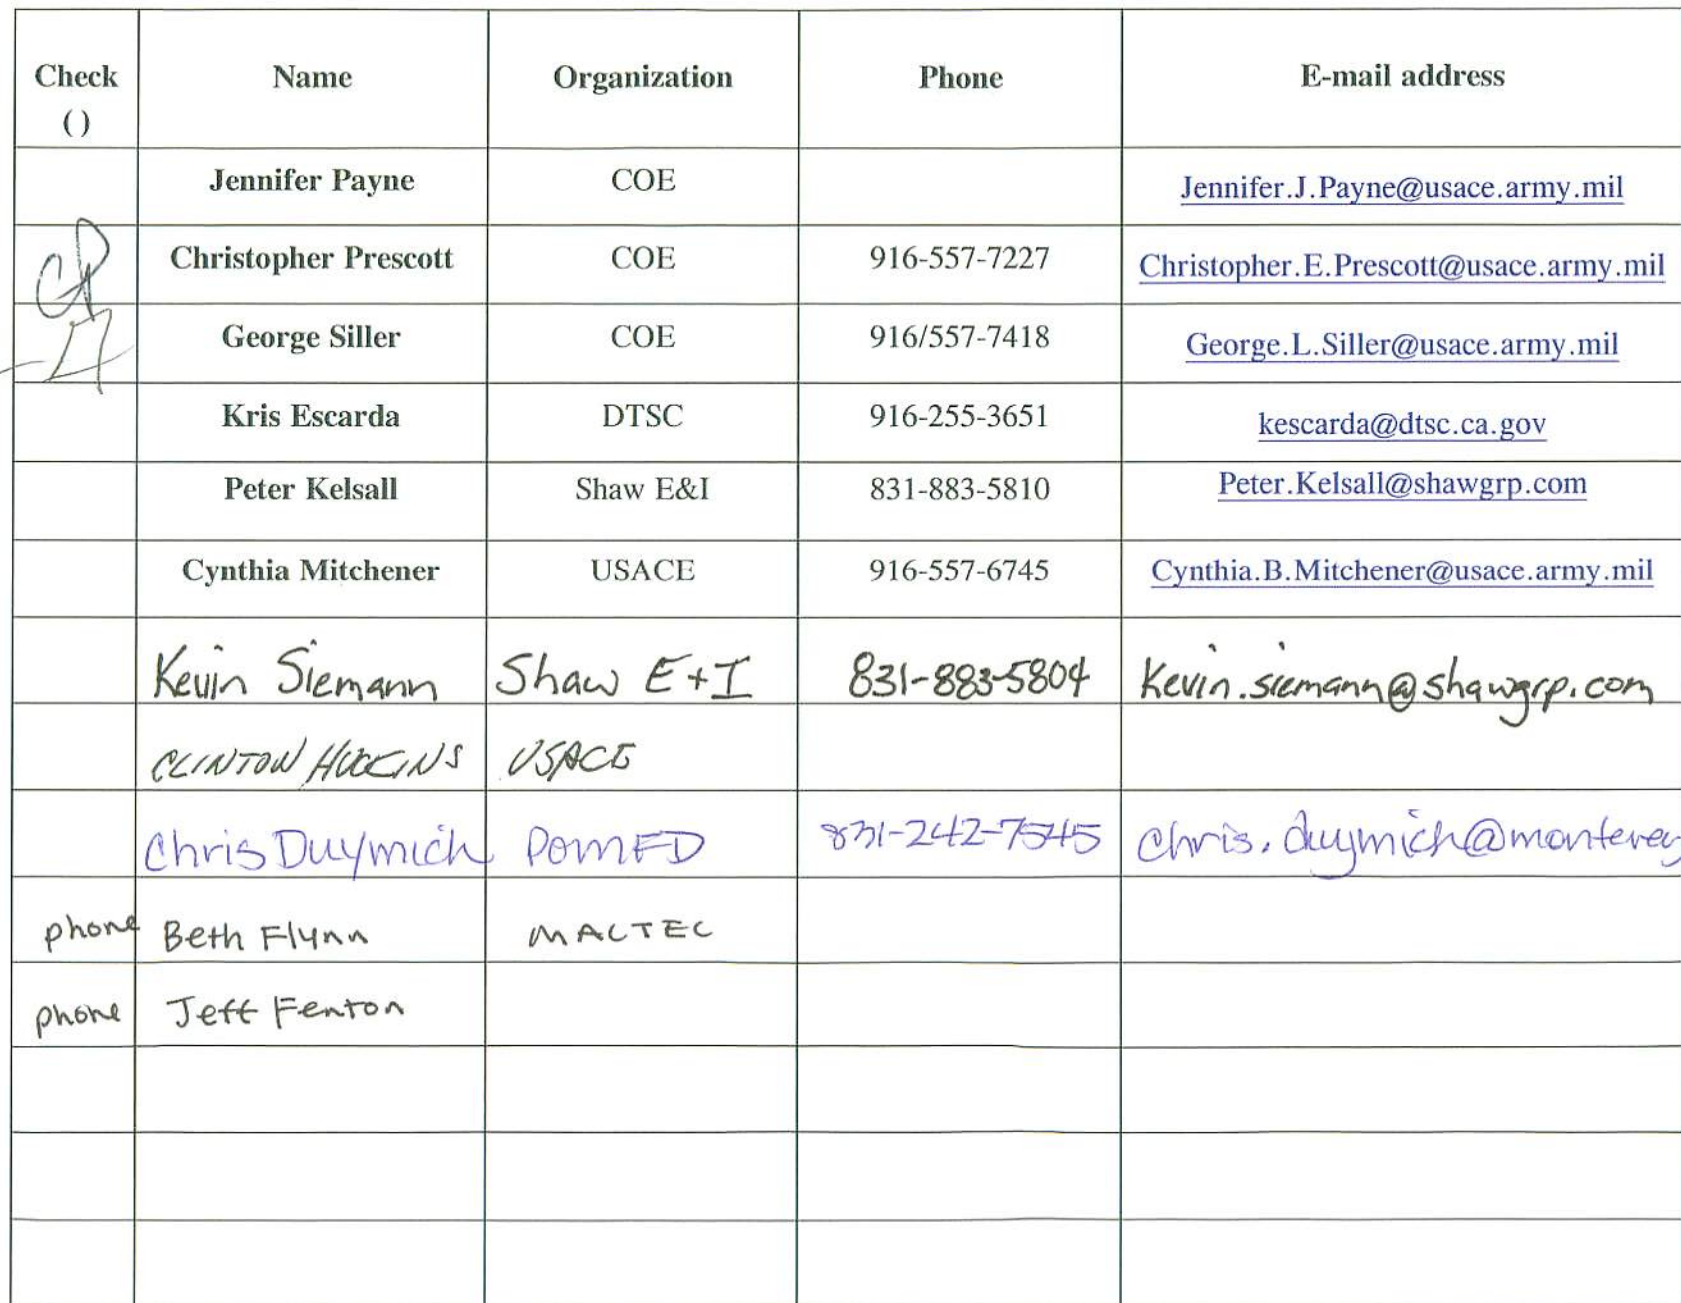 Check Name Organization Phone E-mail address
( )
Jennifer Payne COE Jennifer.J.Payne@usace.army.mil
CP Christopher Prescott COE 916-557-7227 Christopher.E.Prescott@usace.army.mil
George Siller COE 916/557-7418 George.L.Siller@usace.army.mil
Kris Escarda DTSC 916-255-3651 kescarda@dtsc.ca.gov
Peter Kelsall Shaw E&I 831-883-5810 Peter.Kelsall@shawgrp.com
Cynthia Mitchener USACE 916-557-6745 Cynthia.B.Mitchener@usace.army.mil
Kevin Siemann Shaw E+I 831-883-5804 Kevin.siemann@shawgrp.com
CLINTON USACE
Chris Duymich POMFED 831-242-7545 Chris.duymich@monterey
phone Beth Flynn MACTEC
phone Jeff Fenton